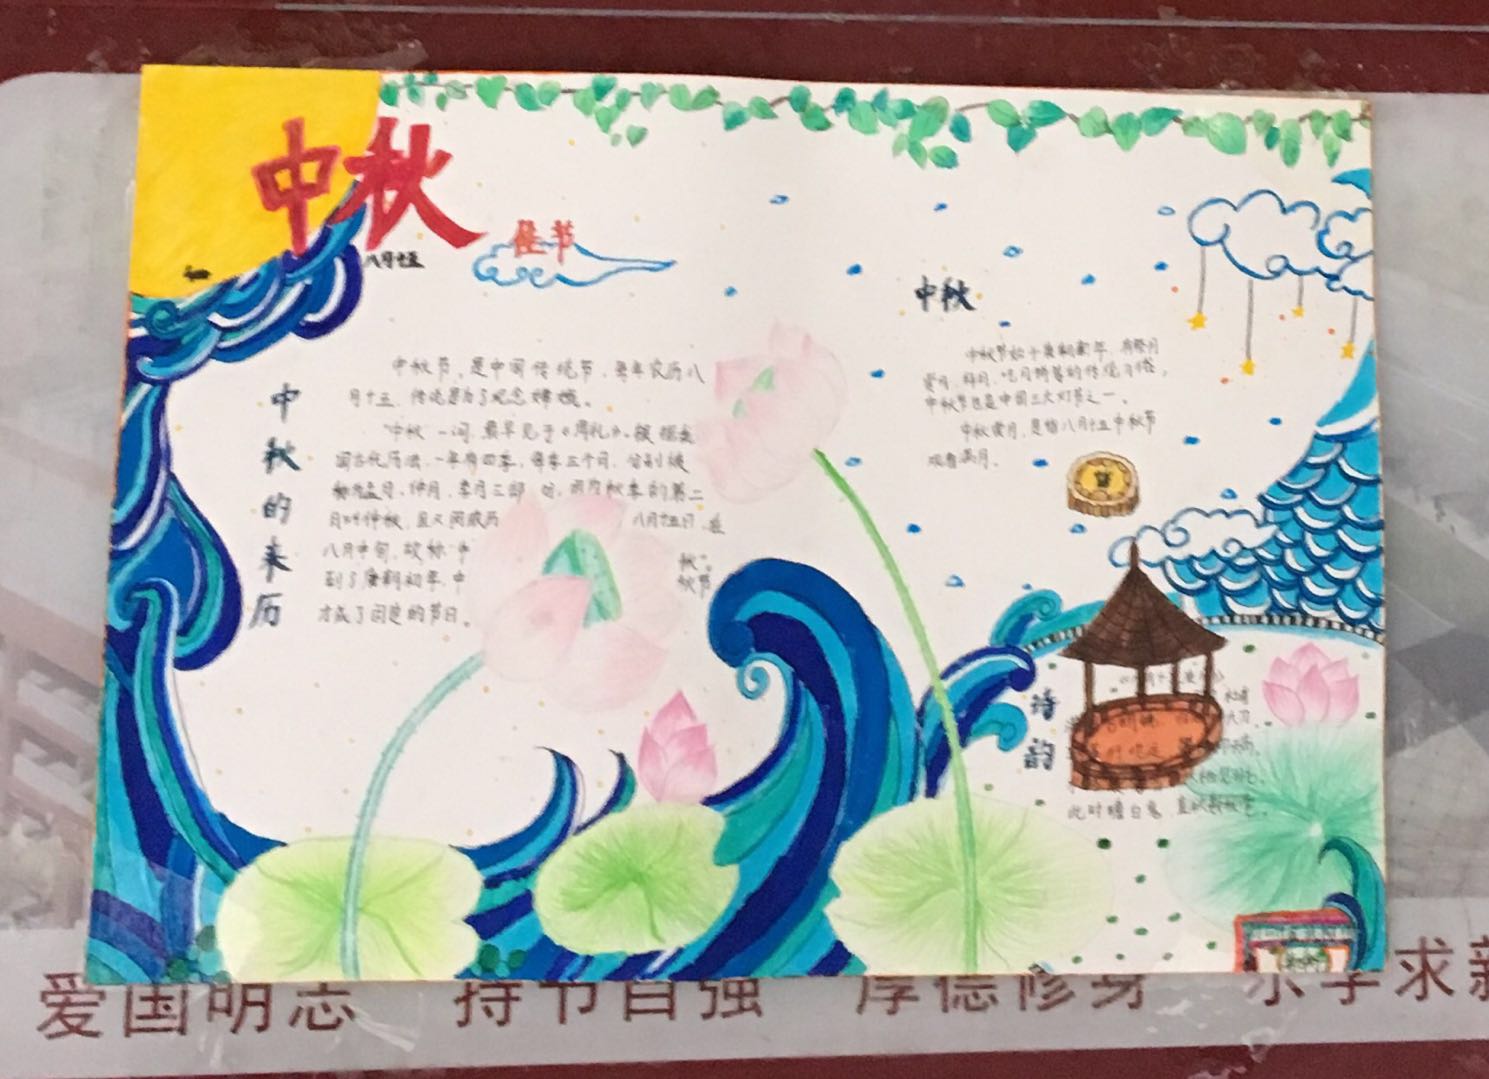 中秋
佳节
八月十五
中秋的来历
中秋节,是中国传统节,每年农历八
月十五,传说是为了纪念嫦娥。
“中秋”一词,最早见于《周礼》。根据我
国古代历法,一年有四季,每季三个月,分别被
称为孟月、仲月、季月三部
月叫仲秋,且又因农历
八月十五日,在
八月中旬,故称“中
秋”。
到了唐朝初年,中
秋节
才成了固定的节日。
中秋
中秋节始于唐朝初年,有祭月
赏月、拜月、吃月饼等的传统习俗,
中秋节也是中国三大灯节之一。
中秋赏月,是指八月十五中秋节
观看满月。
诗韵
此时瞻白兔,直欲数秋毫。
爱国明志 持节自强 厚德修身 乐学求新